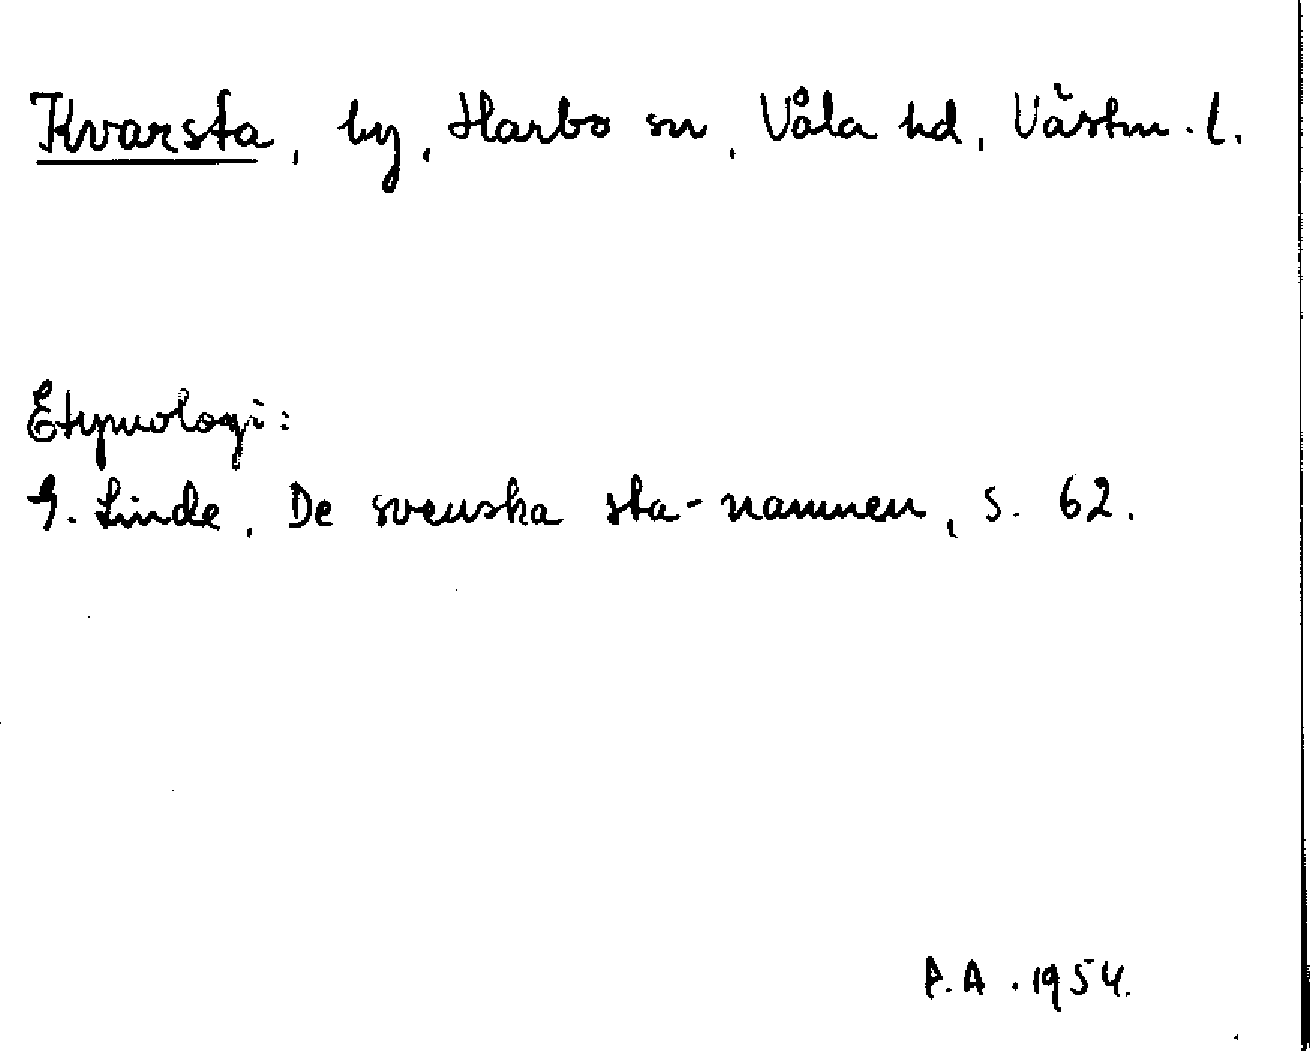 Kvarsta, by, Harbo sn, Våla hd, Västm. l.
Etymologi:
G. Linde, De svenska sta-namnen, s. 62.
P.A. 1954.